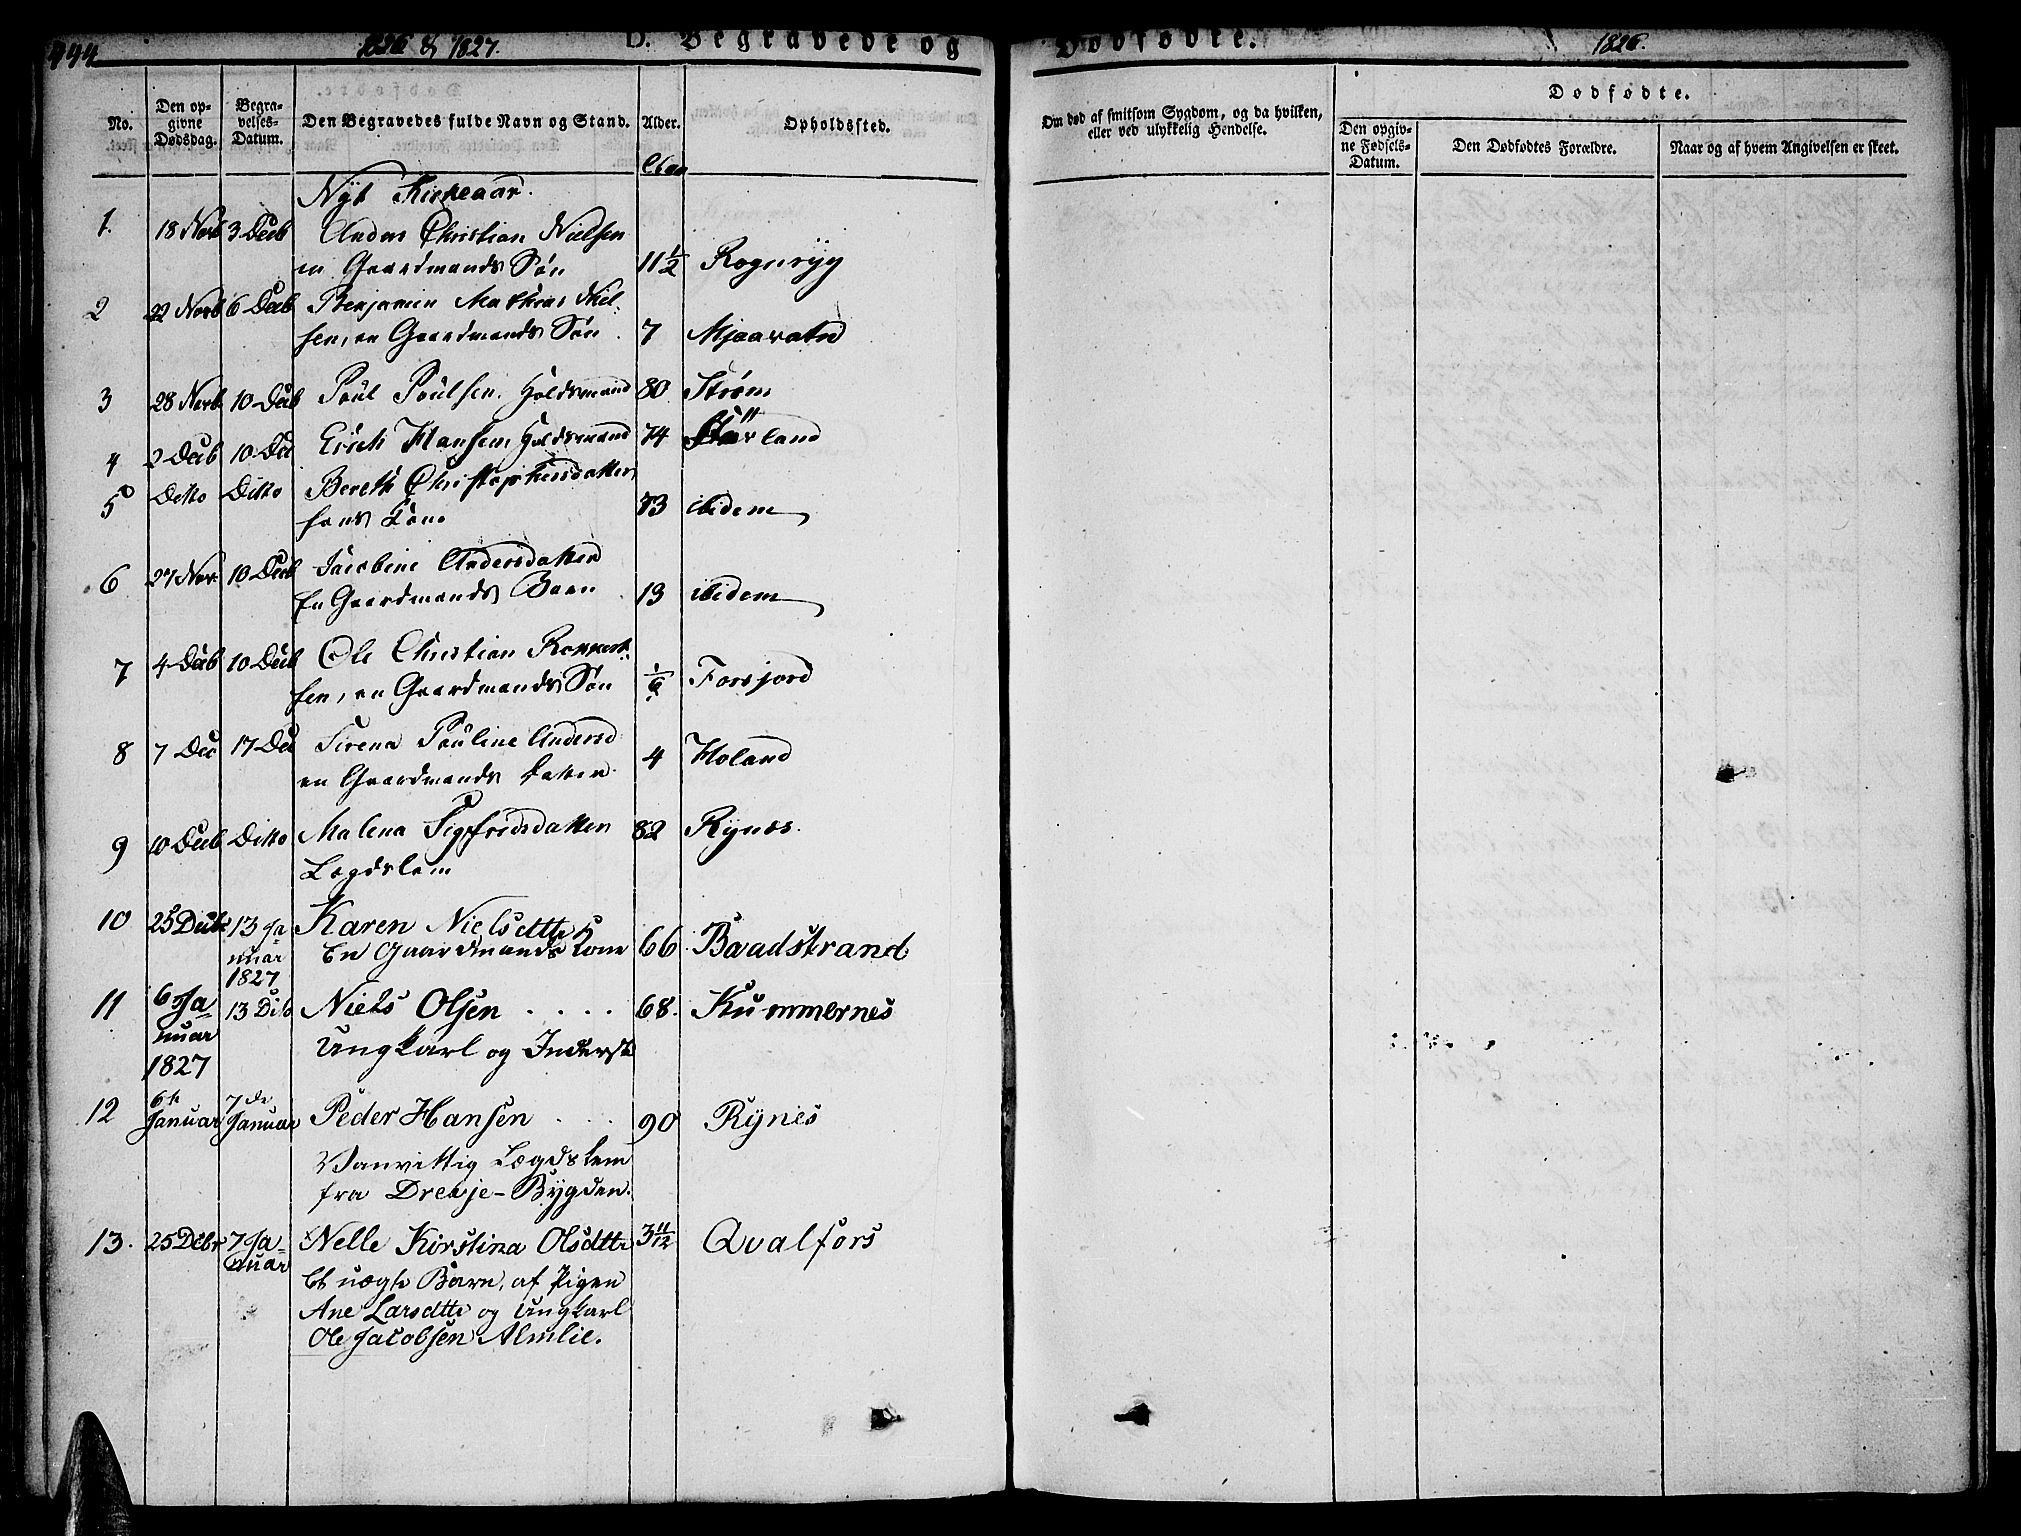 444
1826 & 1827.
D. Begravede og
Dødfødte.
1826.
No.
Den op-
givne
Dødsdag.
Begra-
velses-
Datum.
Den Begravedes fulde Navn og Stand.
Alder.
Opholdssted.
Om død af smitsom Sygdom, og da hvilken,
eller ved ulykkelig Hendelse.
Dødfødte.
Den opgiv-
ne Fødsels-
Datum.
Den Dødfødtes Forældre.
Naar og af hvem Angivelsen er skeet.
Aar
Nyt Kirkeaar.
1. 18 Novb 3 Decb Anders Christian Nielsen
en Gaardmands Søn 11 1/2 Rognryg
2 22 Novb 6 Decb Benjamin Mathias Niel-
sen, en Gaardmands Søn 7 Mjaavatn
3 28 Novb 10 Decb Poul Poulsen, Holdsmand 80 Strøm
4 2 Decb 10 De Erich Hansen Holdsmand 74 land
5 Ditto Ditto Bereth Christophersdatter
hans Kone 73 ibidem
6 27 Nov 10 Decb Jacobine Andersdatter
En Gaardmands Barn 13 ibidem
7 4 Decb 10 Decb Ole Christian
sen, en Gaardmands Søn 1/6 Forsjord
8 7 Dec 17 Dec Sirena Pauline Andersd
en Gaardmands Datter 4 Holand
9 10 Decb Ditto Malena Sigfridsdatter 82 Rynes.
Lægdslem
10 25 Decbr 13 Ja- Karen Nielsdtte
nuar En Gaardmands Kone 66. Baadstrand
1827
11 6 Ja- 13 Dito Niels Olsen . . . . 68. Kummernes
nuar Ungkarl og Inderst
1827
12 6te 7de
Januar Januar Peder Hansen . . . 90 Rynes
Vanvittig Lægdslem
fra Drevje-Bygden.
13. 25 Decbr 7 Ja- Nelle Kirstina Olsdtte 3 11/12 Qvalfors
nuar
Et uægte Barn, af Pigen
Ane Larsdtte og Ungkarl
Ole Jacobsen Almlie.